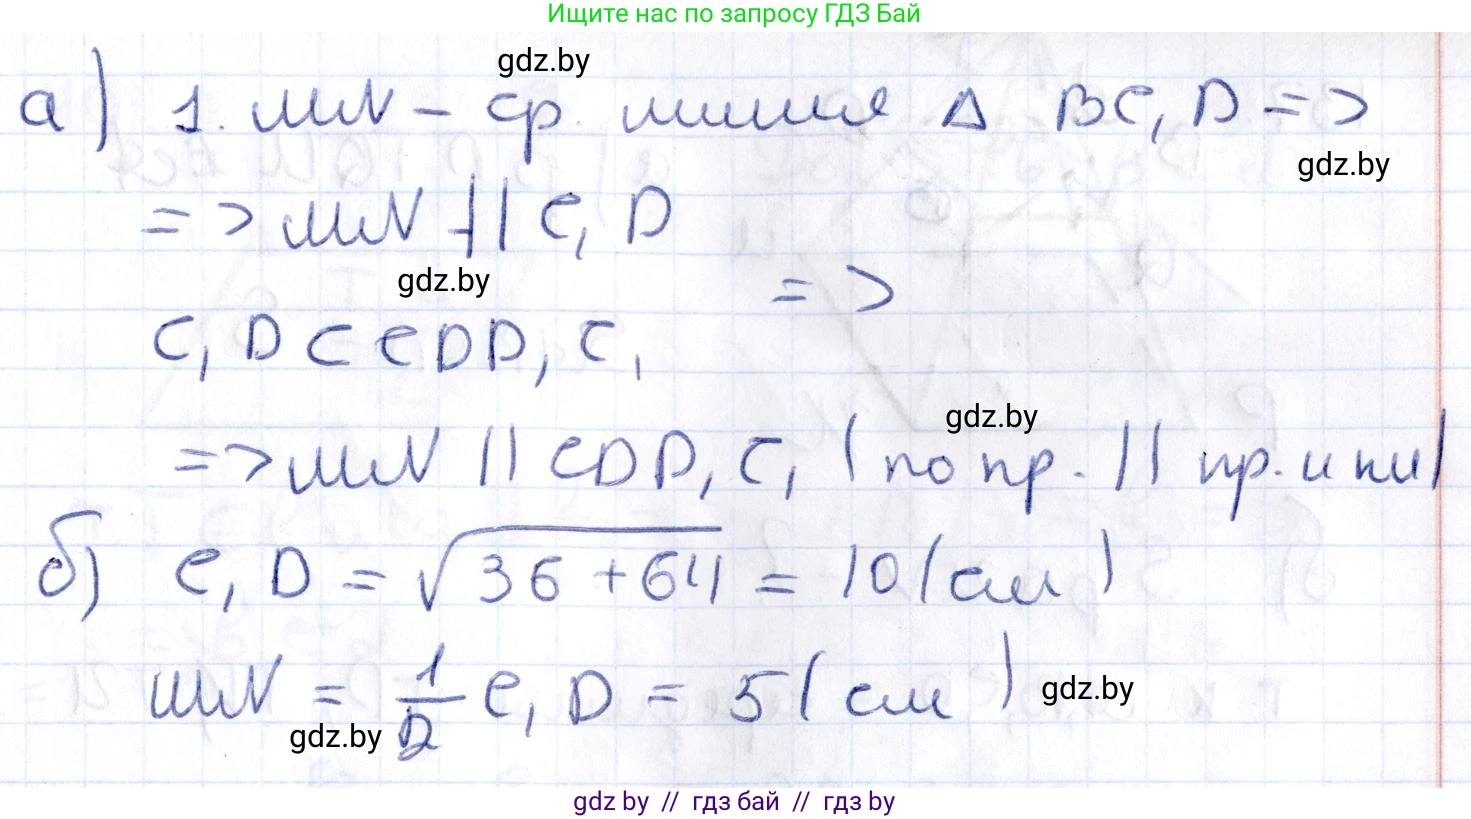 Ищите нас по запросу ГДЗ Бай
gdz.by
а) 1. MN – ср. линия Δ BC₁D =>
gdz.by
=> MN || C₁D
gdz.by
=>
C₁D ⊂ CDD₁C₁
gdz.by
=> MN || CDD₁C₁ (по пр. || пр. и пл)
б) C₁D = √36 + 64 = 10 (см)
MN = 1/2 C₁D = 5 (см)
gdz.by
gdz.by
gdz by // гдз бай // гдз by